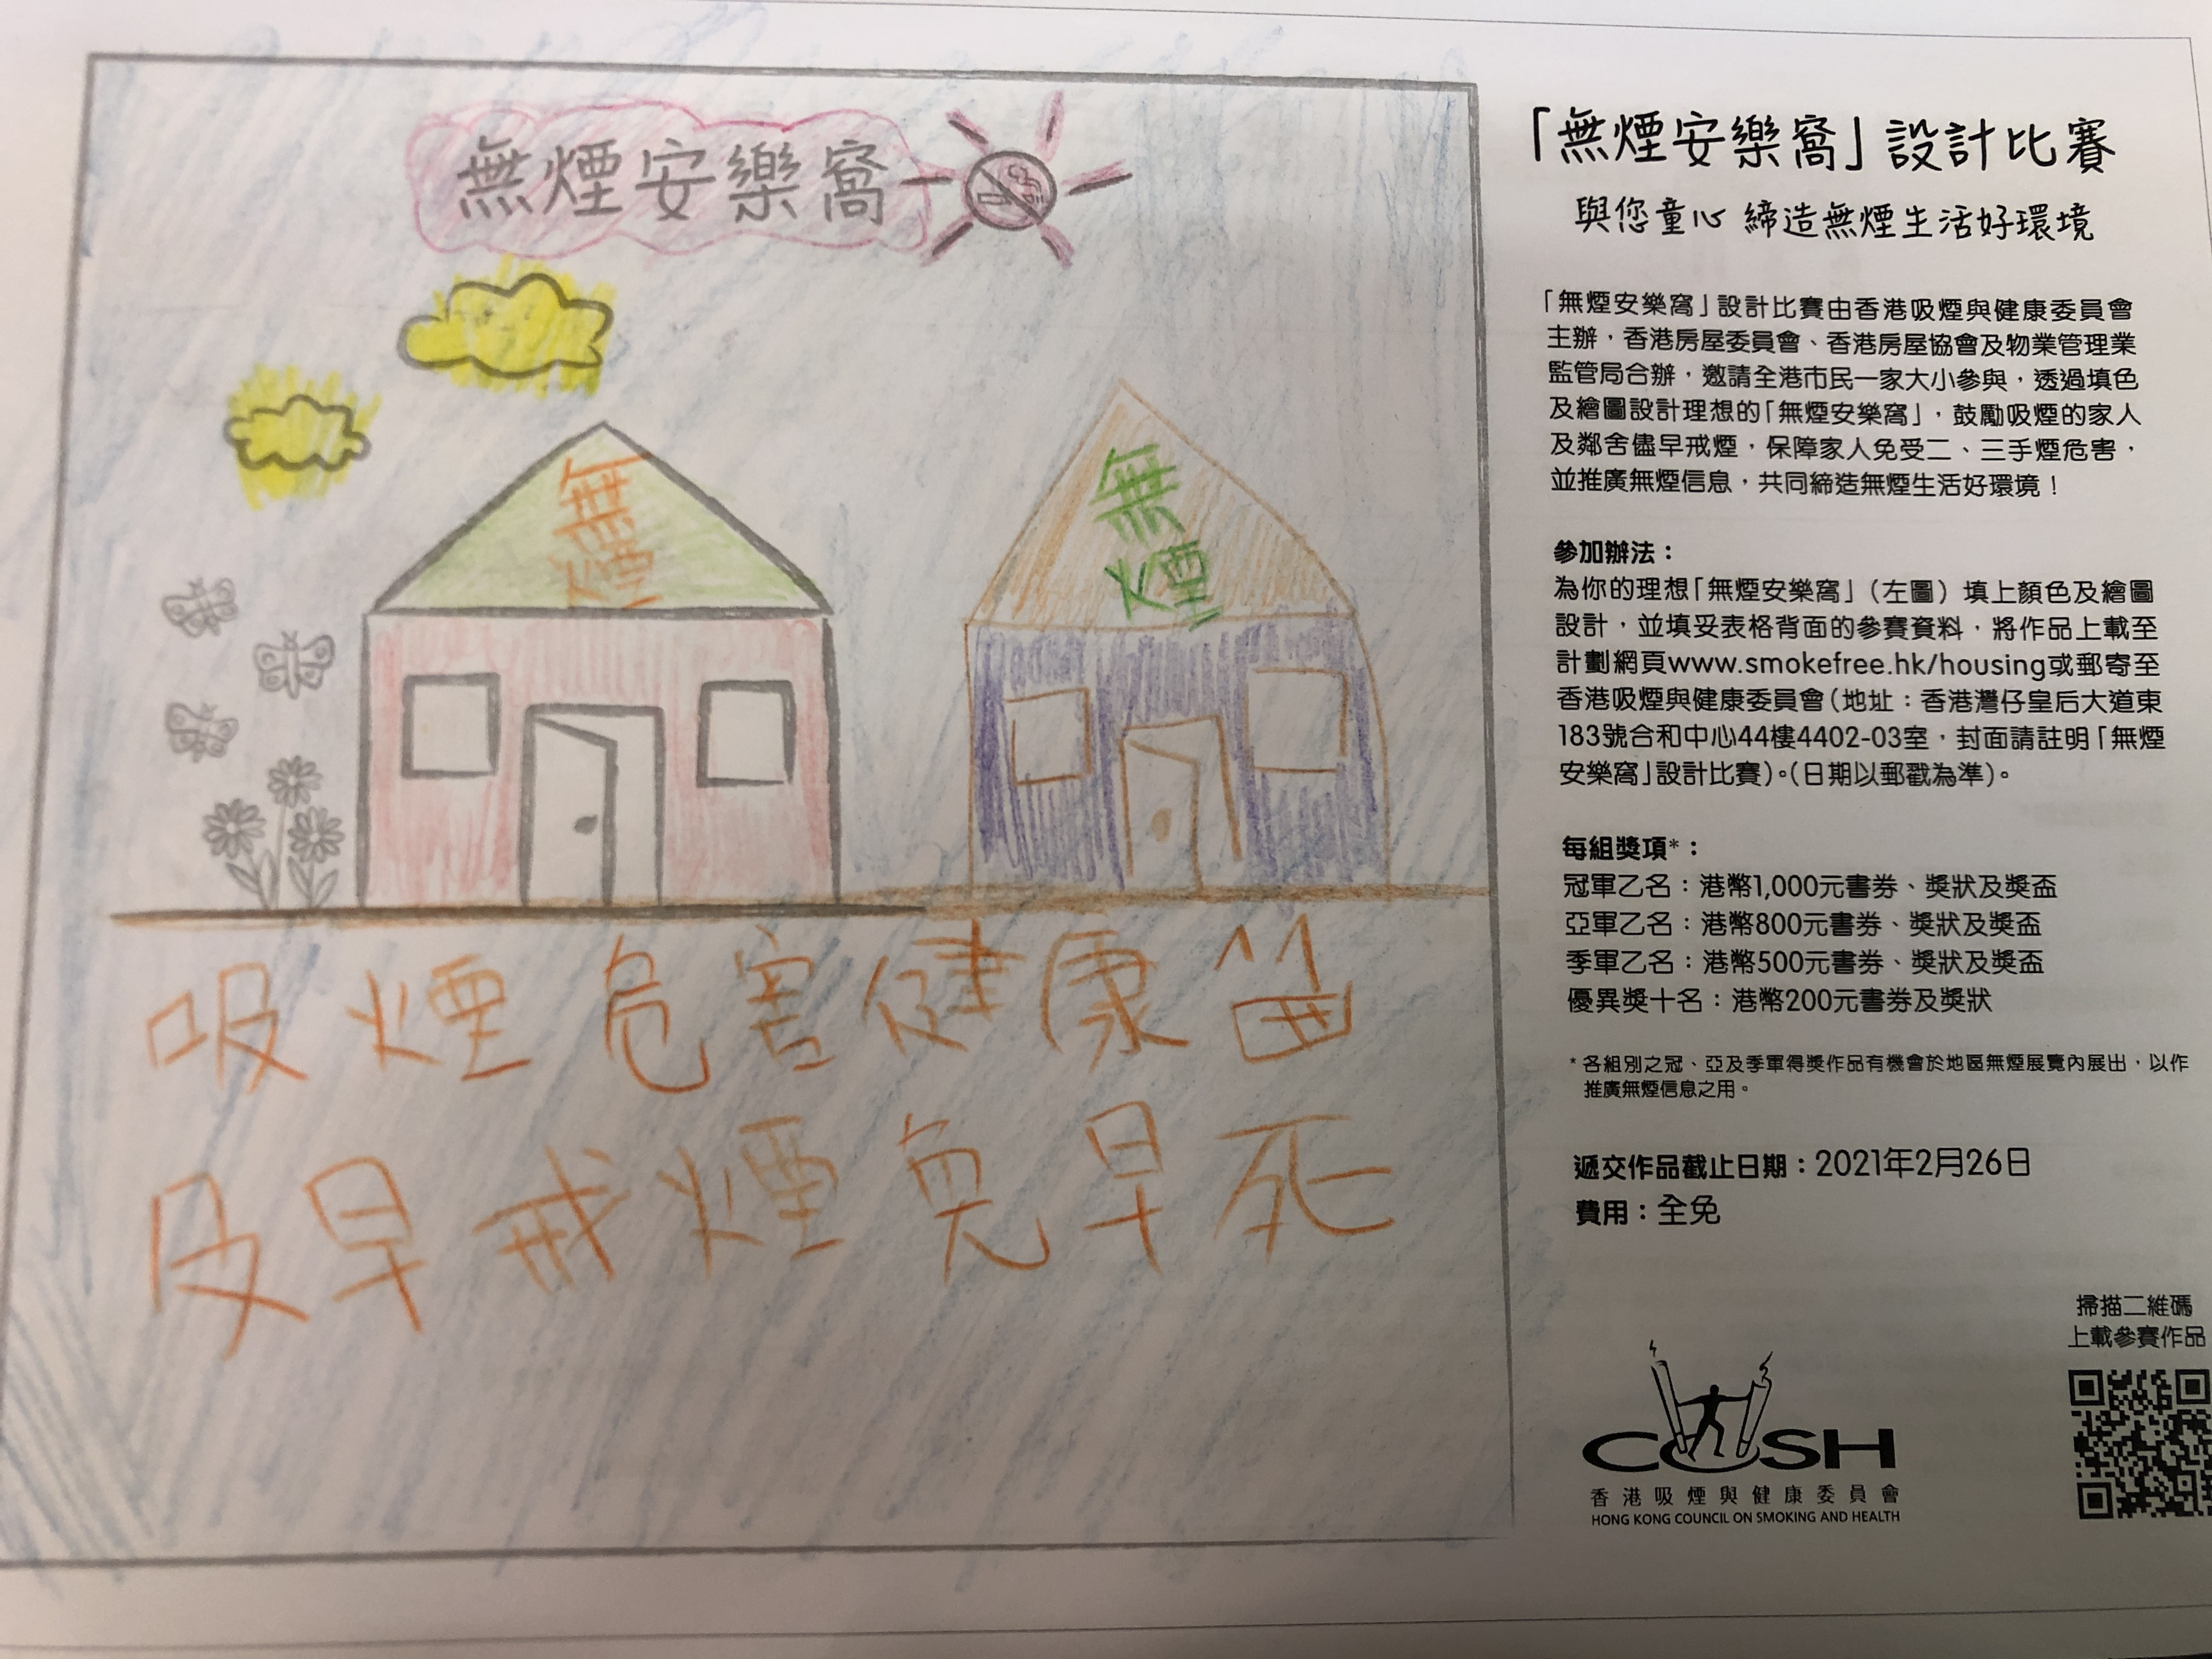 無煙安樂窩
無煙
無煙
吸煙危害健康
及早戒煙免早死
「無煙安樂窩」設計比賽
與您童心 締造無煙生活好環境
「無煙安樂窩」設計比賽由香港吸煙與健康委員會
主辦，香港房屋委員會、香港房屋協會及物業管理業
監管局合辦，邀請全港市民一家大小參與，透過填色
及繪圖設計理想的「無煙安樂窩」，鼓勵吸煙的家人
及鄰舍儘早戒煙，保障家人免受二、三手煙危害，
並推廣無煙信息，共同締造無煙生活好環境！
參加辦法：
為你的理想「無煙安樂窩」（左圖）填上顏色及繪圖
設計，並填妥表格背面的參賽資料，將作品上載至
計劃網頁www.smokefree.hk/housing或郵寄至
香港吸煙與健康委員會（地址：香港灣仔皇后大道東
183號合和中心44樓4402-03室，封面請註明「無煙
安樂窩」設計比賽）。（日期以郵戳為準）。
每組獎項*：
冠軍乙名：港幣1,000元書券、獎狀及獎盃
亞軍乙名：港幣800元書券、獎狀及獎盃
季軍乙名：港幣500元書券、獎狀及獎盃
優異獎十名：港幣200元書券及獎狀
* 各組別之冠、亞及季軍得獎作品有機會於地區無煙展覽內展出，以作
推廣無煙信息之用。
遞交作品截止日期：2021年2月26日
費用：全免
掃描二維碼
上載參賽作品
COSH
香港吸煙與健康委員會
HONG KONG COUNCIL ON SMOKING AND HEALTH